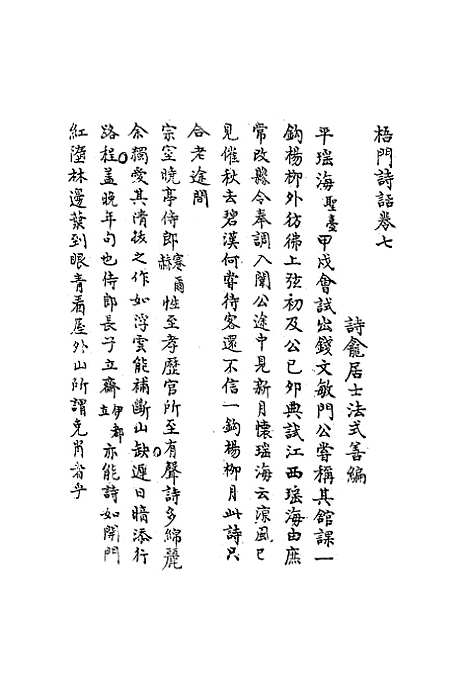 梧門詩話卷七
詩龕居士法式善編
平瑶海聖臺甲戌會試出錢文敏門公嘗稱其館課一
鈎楊柳外彷彿上弦初及公己卯典試江西瑶海由庶
常改縣令奉調入闈公途中見新月懷瑶海云涼風已
見催秋去碧漢何嘗待客還不信一鈎楊柳月此詩只
合老途間
宗室曉亭侍郎塞爾赫性至孝歷官所至有聲詩多綿麗
余獨愛其清後之作如浮雲能補斷山缺遲日暗添行
路程盖晚年句也侍郎長子立齋伊都立亦能詩如閉門
紅溼林邊葉到眼青看屋外山所謂克肖者乎